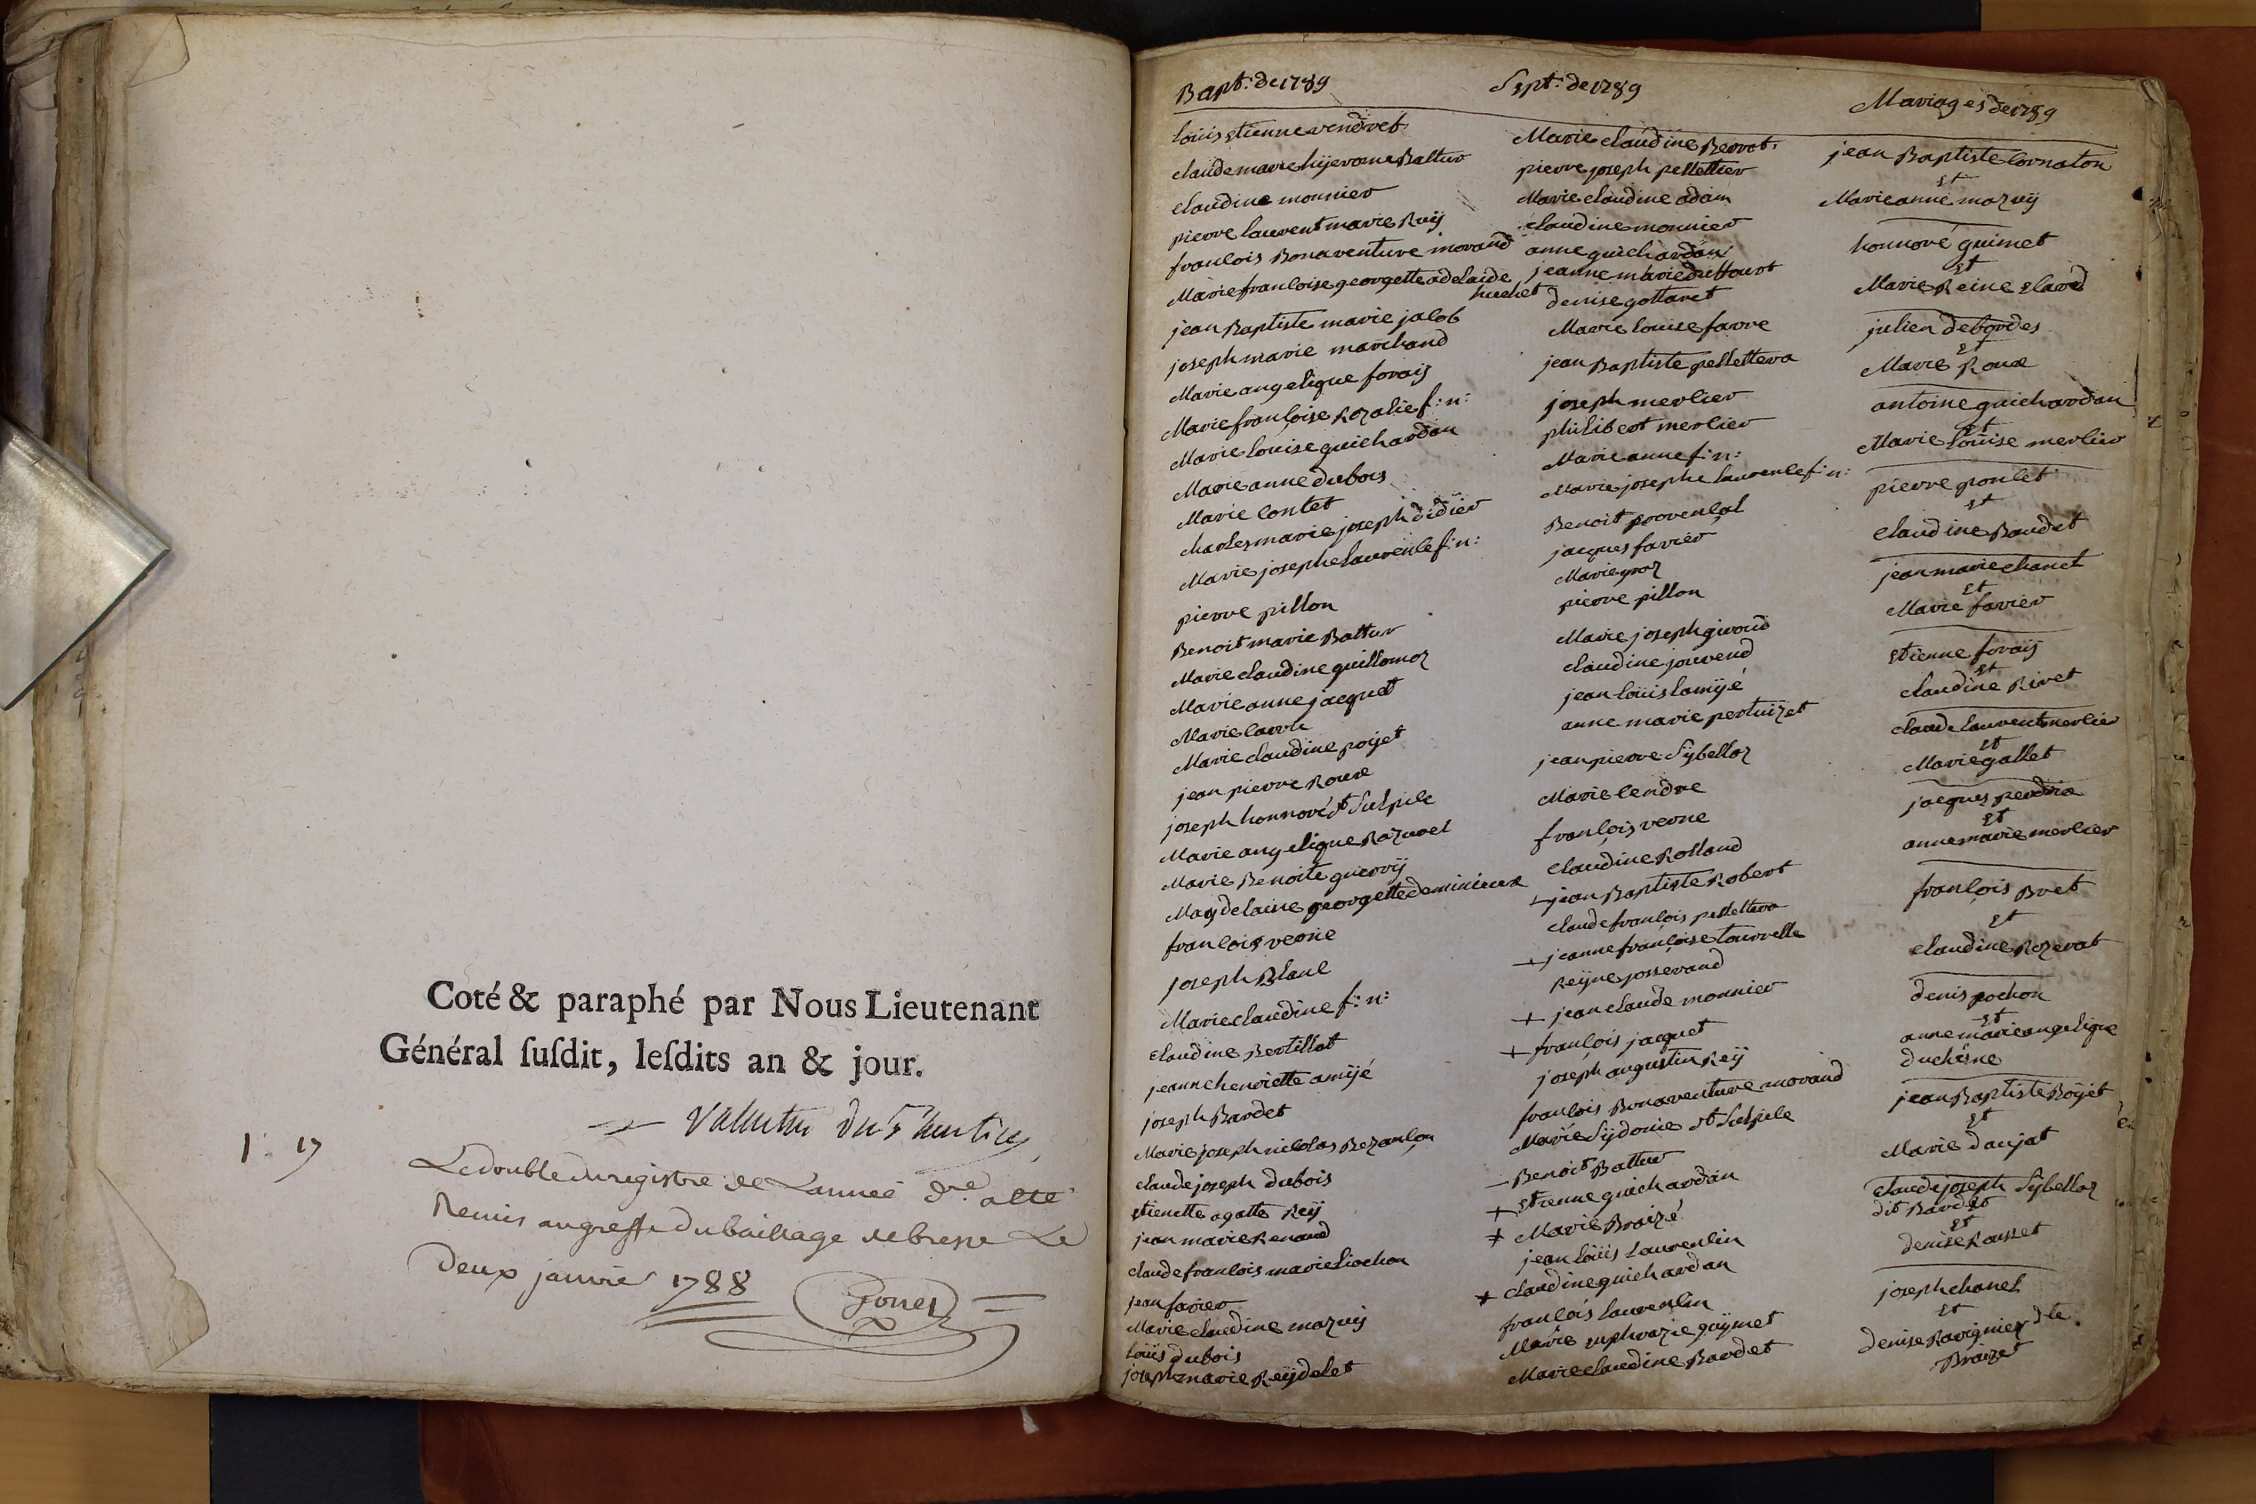 Coté & paraphé par Nous Lieutenant
Général ſuſdit, leſdits an & jour.
1 : 17
Le double du registre de L'année dre a été
Remis au greffe du bailliage de bresse Le
Deux janvier 1788
Bapt: de 1789
louis etienne vendret
claude marie hyerome Battur
claudine monnier
pierre laurent marie Ruij
francois Bonaventure morand
Marie francoise georgette adelaide
huchet
jean Baptiste marie jacob
joseph marie marchand
Marie angelique forais
Marie françoise Rozalie f: n:
Marie louise guichardan
Marie anne dubois
Marie contet
charles marie joseph didier
Marie josephe laurence f: n:
pierre pillon
Benoit marie Battur
Marie claudine guillomoz
Marie anne jacquet
Marie
Marie claudine poijet
jean pierre Roux
joseph honnoré st Sulpice
Marie angelique Razurel
Marie Benoite guerrij
Magdelaine georgette deminieux
francois verne
joseph Blanc
Marie claudine f: n:
claudine Bertillot
jeanne henriette amijé
joseph Bardet
Marie joseph nicolas Bezançon
claude joseph dubois
etienette agatte Reij
jean marie Renaud
claude francois marie liochon
jean favier
Marie claudine mazuij
louis dubois
joseph marie Reijdelet
Sept: de 1789
Marie claudine Berrot.
pierre joseph pellettier
Marie claudine adam
claudine monnier
anne guichardan
jeanne marie duttourt
denise gottaret
Marie louise favre
jean Baptiste pelletiera
joseph merlier
philibert merlier
Marie anne f: n:
Marie josephe laurence f: n:
Benoit provençal
jacques favrier
Marie
pierre pillon
Marie joseph giroud
claudine jouvend
jean louis lamijé
anne marie pertuizet
jean pierre Sijbelloz
Marie cendre
françois verne
claudine Rolland
– jean Baptiste Robert
claude françois pelletiera
– jeanne françoise tourrelle
Reijne josserand
+ jean claude monnier
+ françois jacquet
joseph augustin Reij
françois Bonaventure morand
Marie Sijdonie st Sulpice
– Benoit Battur
+ Etienne guichardan
+ Marie Braizé
jean louis laurencin
+ claudine guichardan
françois laurencin
Marie euphrazie guijmet
Marie claudine Bardet
Mariages de 1789
jean Baptiste Cornaton
Et
Marie anne mazuij
honnoré guimet
Et
Marie Reine clard
julien debordes
Et
Marie Roux
antoine guichardan
Et
Marie louise merlier
pierre poncet
Et
claudine Baudet
jean marie chanel
Et
Marie favier
Etienne forais
Et
claudine Rivet
claude laurent merlier
Et
Marie gallet
jacques perdrix
Et
anne marie merlier
françois Bret
Et
claudine Rozerat
denis pochon
Et
anne marie angelique
duchesne
jean Baptiste Boijet
Et
Marie daujat
claude joseph Sijbelloz
dit Bardet
Et
denise Rousset
joseph chanel
Et
denise Ravignier dte
Braizet